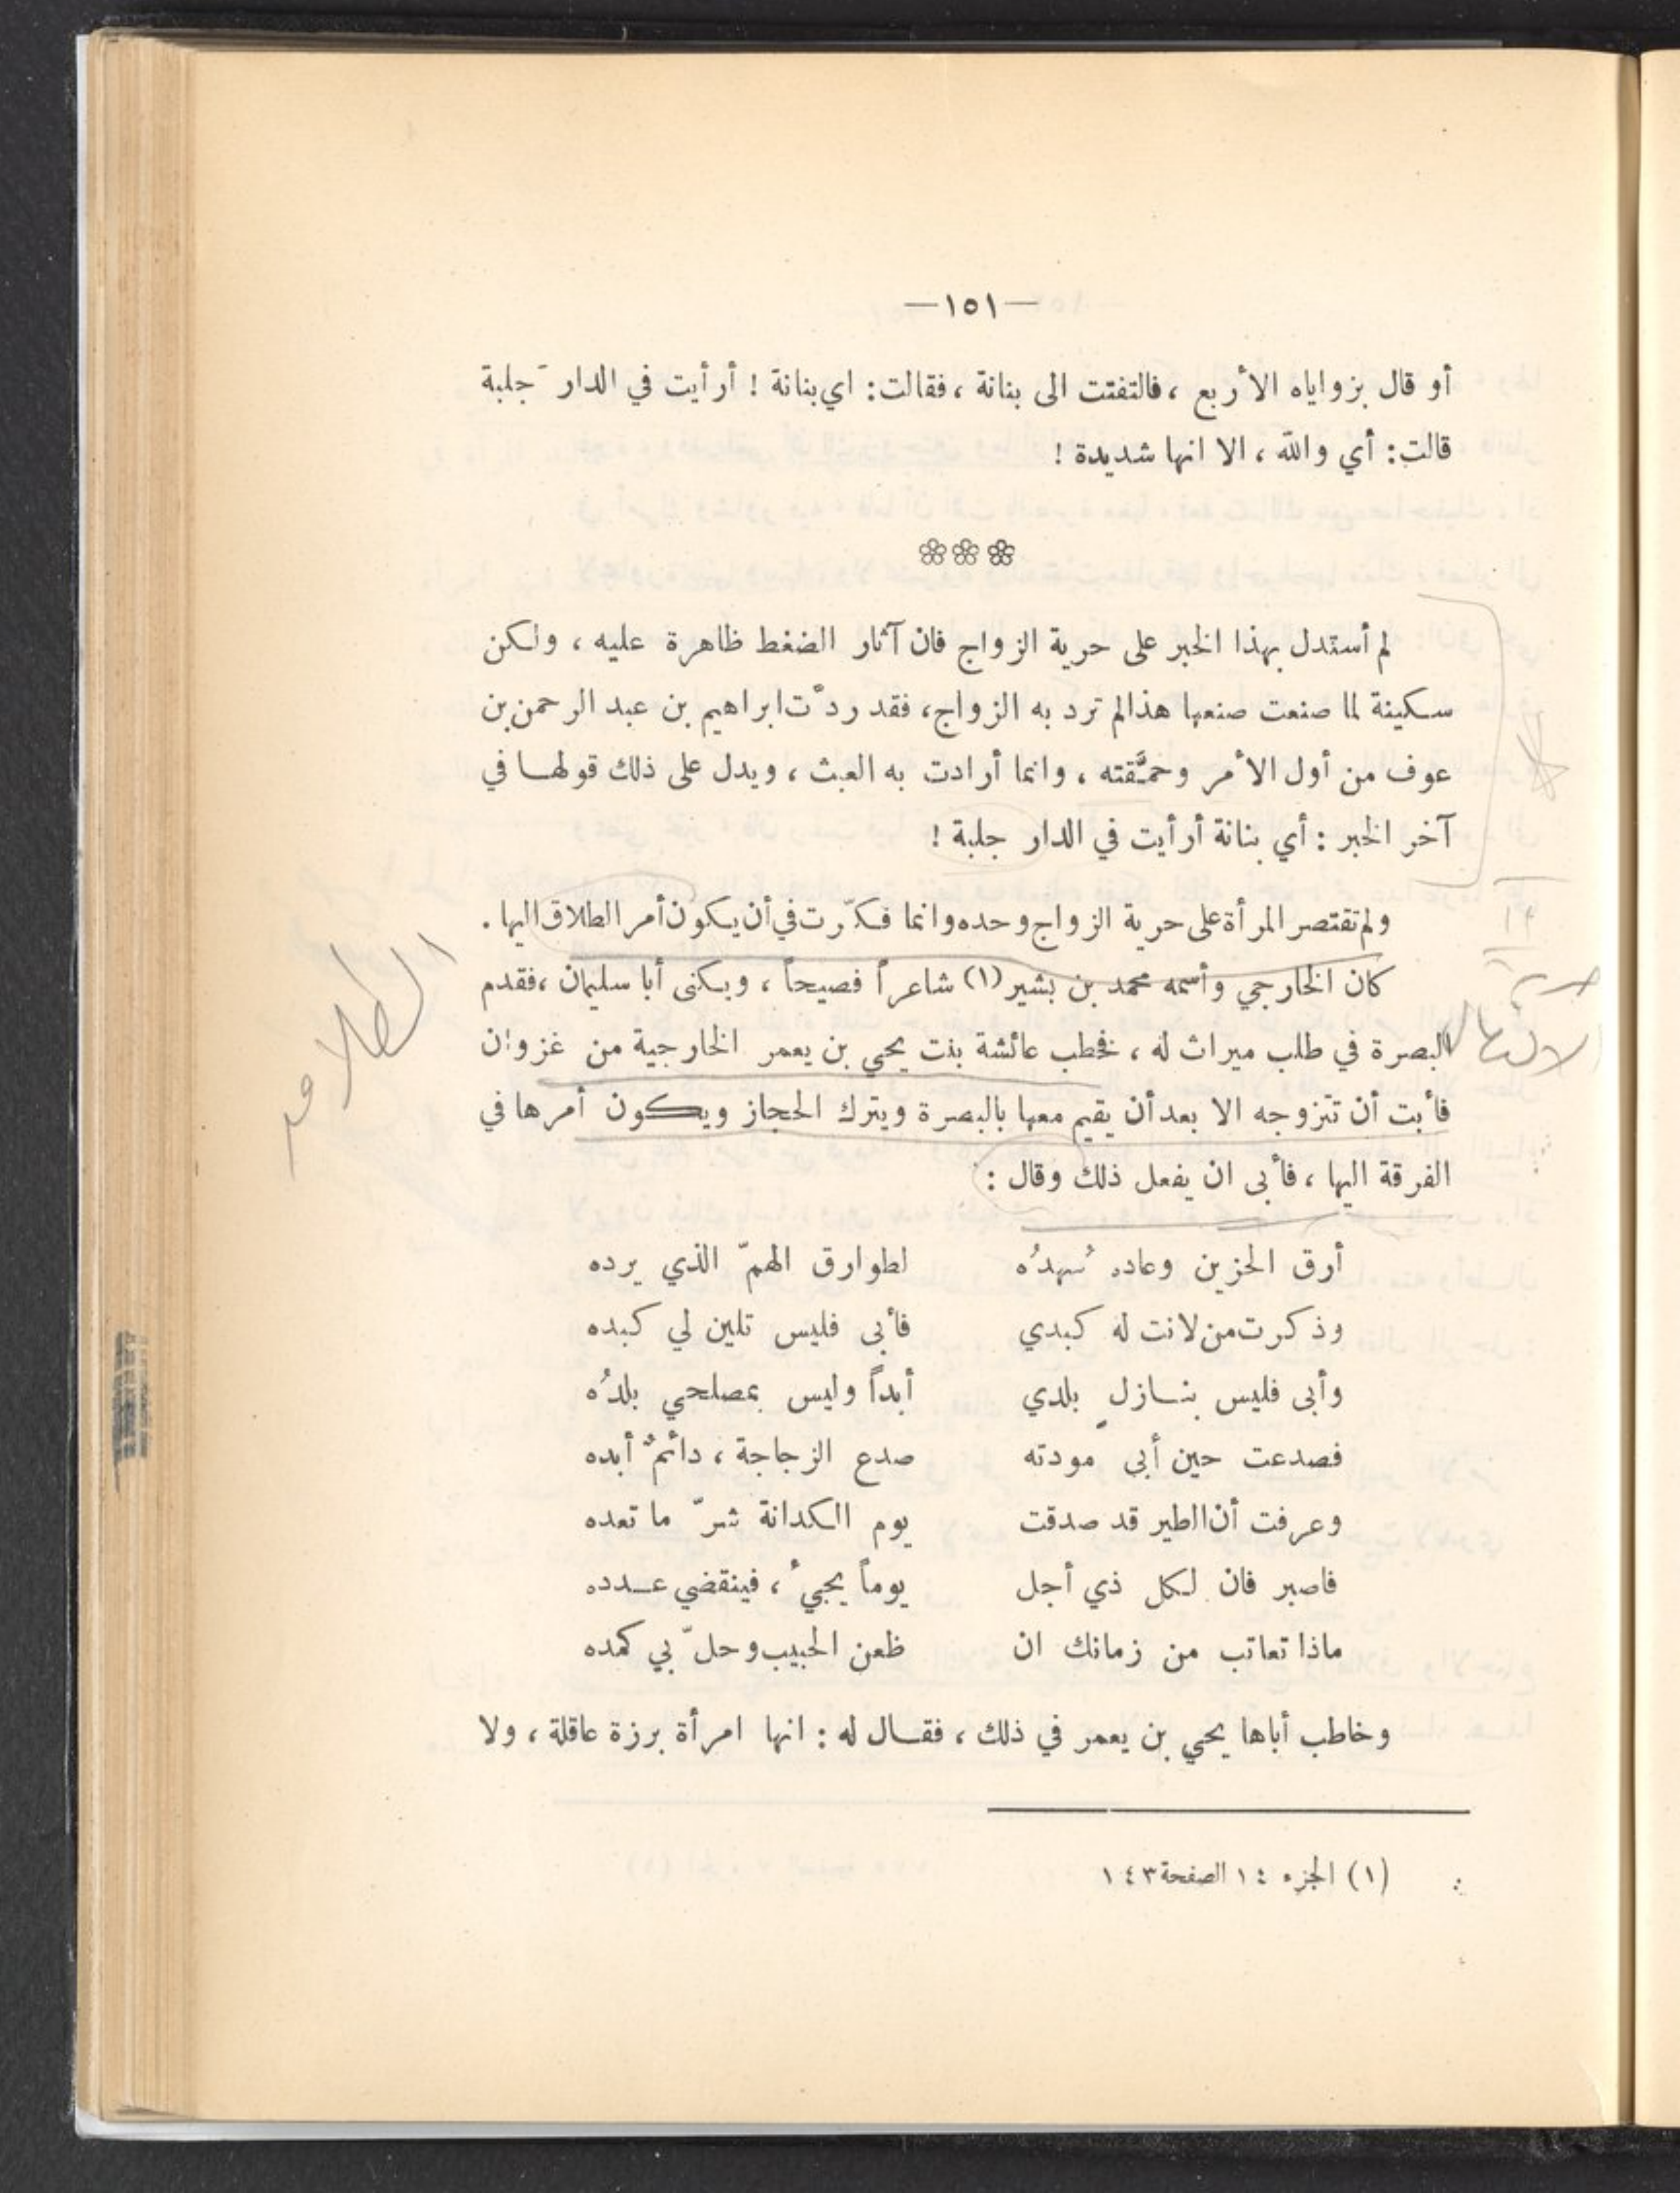 —١٥١—
أو قال بزواياه الأربع ، فالتفتت الى بنانة ، فقالت : اي بنانة ! أرأيت في الدار جَلبة
قالت : أي والله ، الا انها شديدة !
❀❀❀
لم أستدل بهذا الخبر على حرية الزواج فان آثار الضغط ظاهرة عليه ، ولكن
سكينة لما صنعت صنعها هذا لم ترد به الزواج ، فقد ردَّت ابراهيم بن عبد الرحمن بن
عوف من أول الأمر وحمَّقته ، وانما أرادت به العبث ، ويدل على ذلك قولهـا في
آخر الخبر : أي بنانة أرأيت في الدار جلبة !
ولم تقتصر المرأة على حرية الزواج وحده وانما فكّرت في أن يكون أمر الطلاق اليها .
كان الخارجي وأسمه محمد بن بشير (١) شاعراً فصيحاً ، ويكنى أبا سليمان ، فقدم
البصرة في طلب ميراث له ، فخطب عائشة بنت يحيي بن يعمر الخارجية من غزوان
فأبت أن تتزوجه الا بعد أن يقيم معها بالبصرة ويترك الحجاز ويكون أمرها في
الفرقة اليها ، فأبى ان يفعل ذلك وقال :
أرق الحزين وعاده سُهدُه لطوارق الهمّ الذي يرده
وذكرت من لانت له كبدي فأبى فليس تلين لي كبده
وأبى فليس بنـازلٍ بلدي أبداً وليس بمصلحي بلدُه
فصدعت حين أبى مودته صدع الزجاجة ، دائمٌ أبده
وعرفت أن الطير قد صدقت يوم الكدانة شرّ ما تعده
فاصبر فان لكل ذي أجل يوماً يجيُ ، فينقضي عـدده
ماذا تعاتب من زمانك ان ظعن الحبيب وحلّ بي كمده
وخاطب أباها يحيي بن يعمر في ذلك ، فقـال له : انها امرأة برزة عاقلة ، ولا
(١) الجزء ١٤ الصفحة ١٤٣
الطلاق